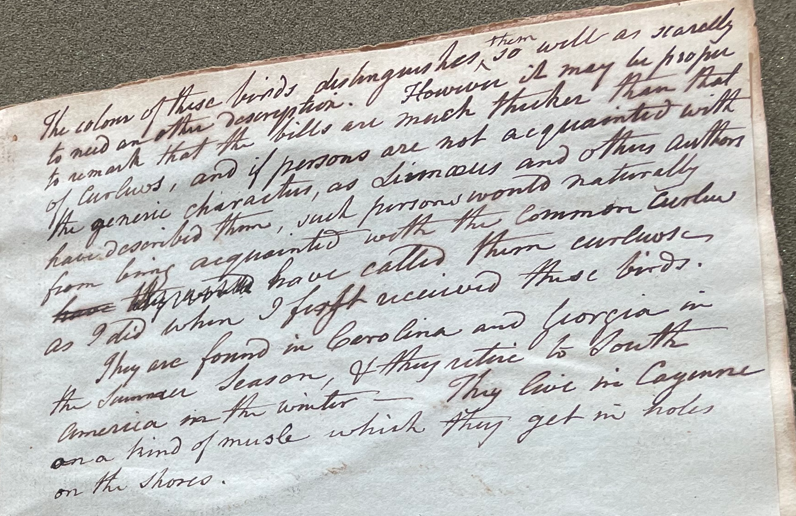 The colour of these birds distinguishes, them so well as scarcely
to need an other description. However it may be proper
to remark that the bills are much thicker than that
of Curlews, and if persons are not acquainted with
the generic character, as Linnæus and other authors
have described them, such persons would naturally
from being acquainted with the Common Curlew
have they would have called them curlews
as I did when I first received these birds.
They are found in Carolina and Georgia in
the Summer Season, & they retire to South
America in the winter — They live in Cayenne
on a kind of musle which they get in holes
on the shores.